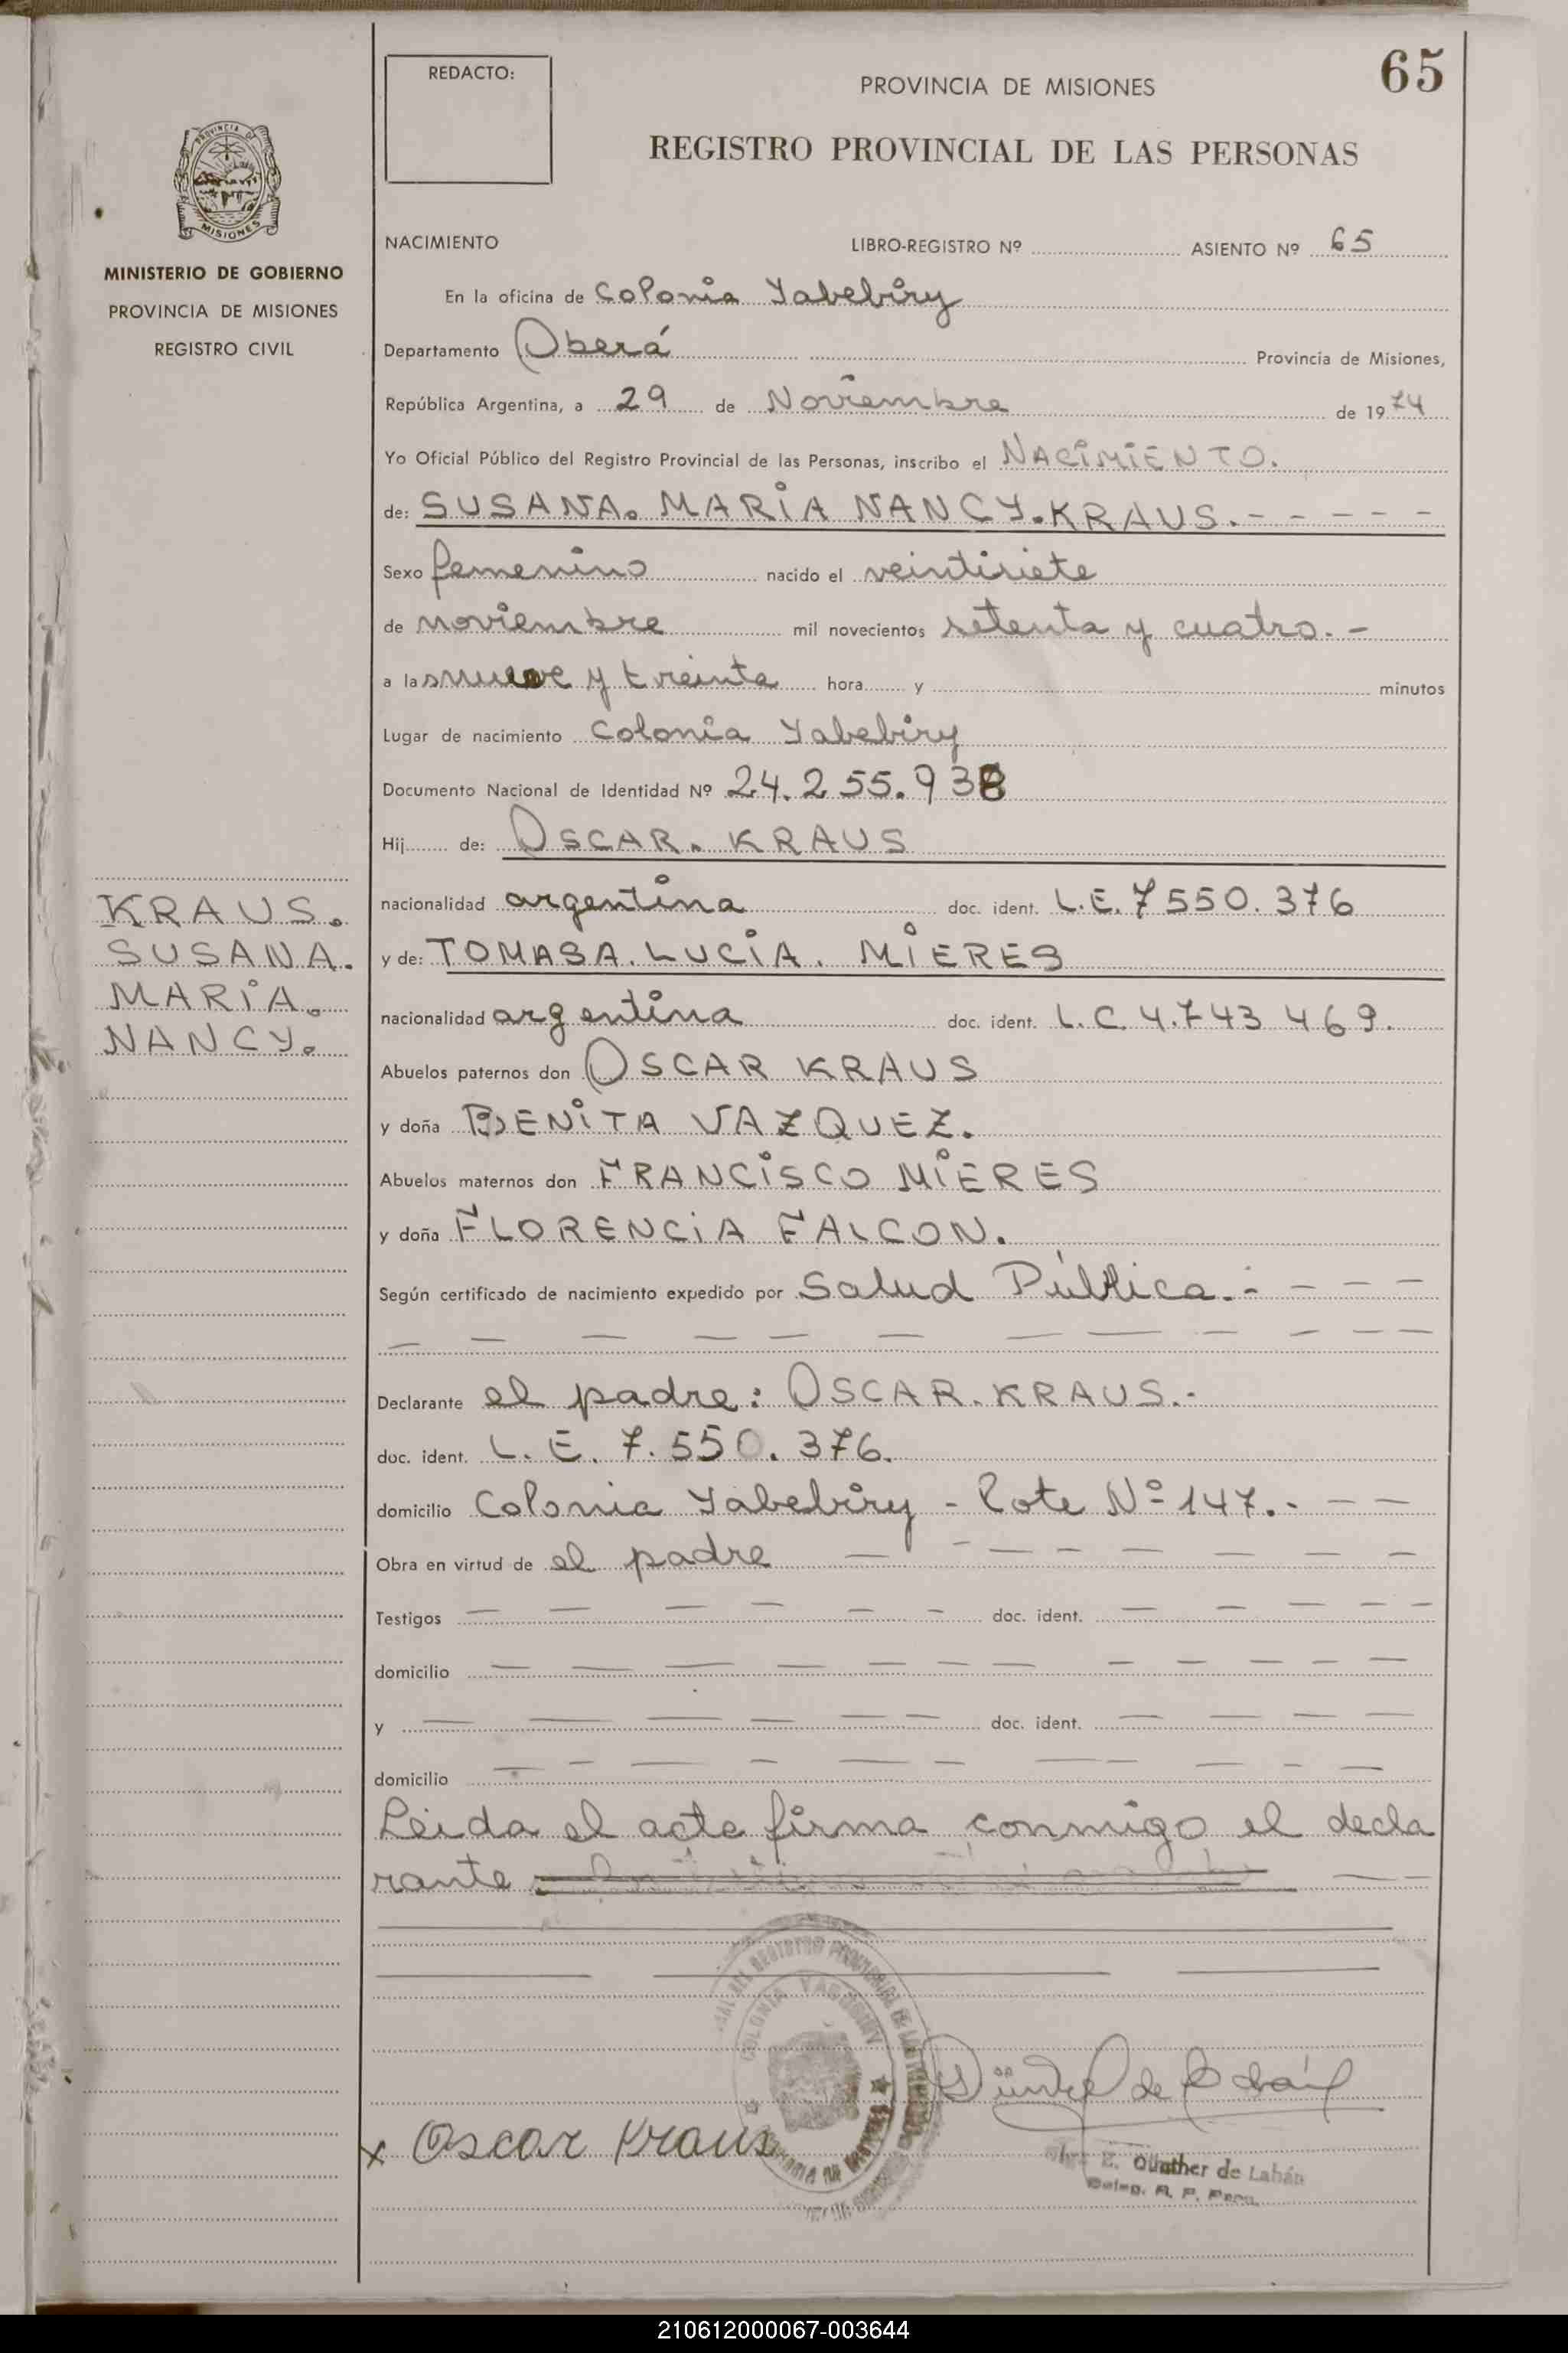 65
REDACTO:
PROVINCIA DE MISIONES
REGISTRO PROVINCIAL DE LAS PERSONAS
PROVINCIA DE
MISIONES
MINISTERIO DE GOBIERNO
PROVINCIA DE MISIONES
REGISTRO CIVIL
NACIMIENTO LIBRO-REGISTRO Nº ASIENTO Nº 65
En la oficina de Colonia Yabebiry
Departamento Oberá Provincia de Misiones,
República Argentina, a 29 de Noviembre de 1974
Yo Oficial Público del Registro Provincial de las Personas, inscribo el NACIMIENTO.
de: SUSANA. MARIA NANCY. KRAUS. - - - - -
Sexo femenino nacido el veintisiete
de noviembre mil novecientos setenta y cuatro. -
a las nueve y treinta hora y minutos
Lugar de nacimiento Colonia Yabebiry
Documento Nacional de Identidad Nº 24.255.938
Hij de: OSCAR. KRAUS
nacionalidad argentina doc. ident. L.E. 7550.376
y de: TOMASA. LUCIA. MIERES
nacionalidad argentina doc. ident. L.C. 4.743 469.
Abuelos paternos don OSCAR KRAUS
y doña BENITA VAZQUEZ.
Abuelos maternos don FRANCISCO MIERES
y doña FLORENCIA FALCON.
Según certificado de nacimiento expedido por Salud Pública. - - - -
Declarante el padre: OSCAR. KRAUS. -
doc. ident. L. E. 7.550.376.
domicilio Colonia Yabebiry - Lote Nº 147. - - -
Obra en virtud de el padre
Testigos doc. ident.
domicilio
y doc. ident.
domicilio
Leida el acta firma conmigo el decla
rante
KRAUS.
SUSANA.
MARIA.
NANCY.
COLONIA YABEBIRY
x Oscar Kraus
E. Günther de Labán
Deleg. R. P. Pers.
210612000067-003644